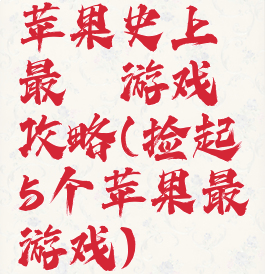 苹果史上
最 游戏
攻略(捡起
5个苹果最
游戏)